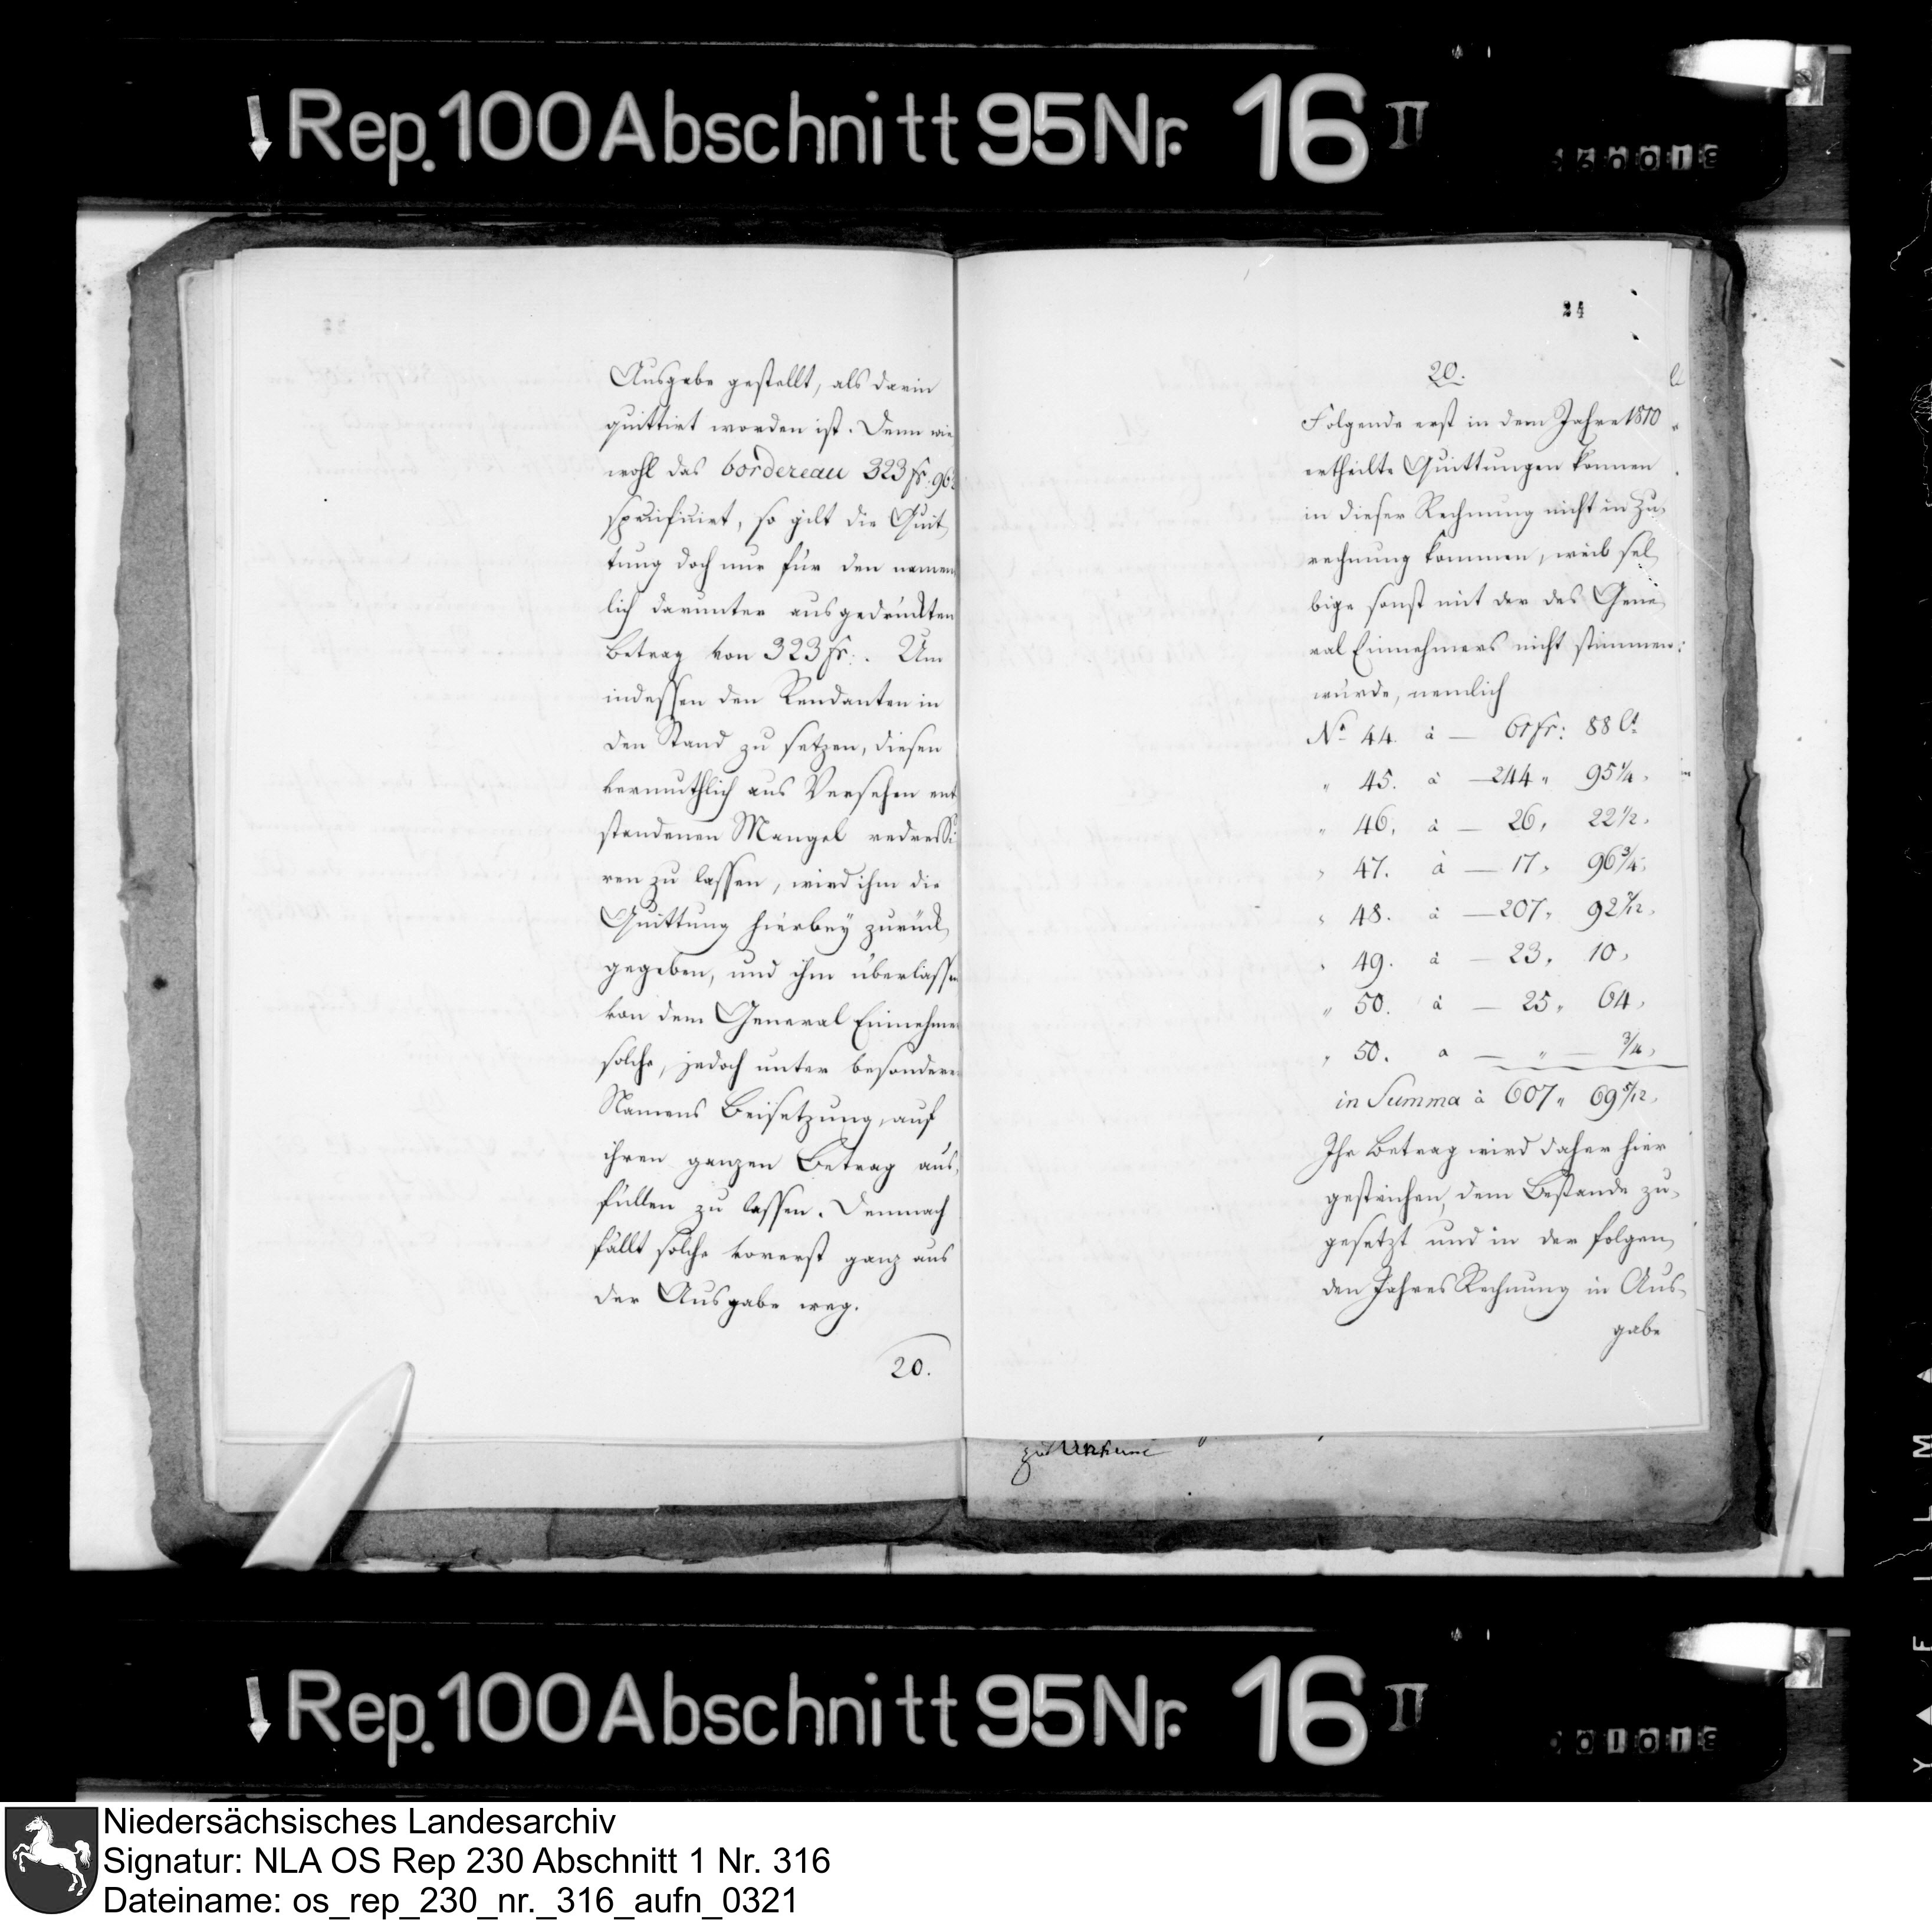 Rep. 100 Abschnitt 95 Nr. 16 II
Ausgabe gestellt, als darin
quittirt worden ist. Denn wie
wohl das bordereau 323 fr: 96
specificirt, so gilt die Quit,
tung doch nur für den nament
lich darunter ausgedrückten
Betrag von 323 fr: . Um
indessen den Rendanten in
den Stand zu setzen, diesen
vermuthlich aus Versehen ent
standenen Mangel redressi
ren zu lassen, wird ihm die
Quittung hierbey zurück,
gegeben, und ihm überlassen
von dem General Einnehmer
solche, jedoch unter besonderer
Namens Beisetzung, auf
ihren ganzen Betrag aus,
füllen zu lassen. Demnach
fällt solche vorerst ganz aus
der Ausgabe weg.
20.
24
20.
Folgende erst in dem Jahre 1810
ertheilte Quittungen können
in dieser Rechnung nicht in Zu,
rechnung kommen, weil sel,
bige sonst mit der des Gene,
ral Einnehmers nicht stimmen:
würde, nemlich
No 44. à — 61 fr: 88 Ct
" 45. à — 244 " 95 1/4 "
" 46. à — 26 " 22 1/2 "
" 47. à — 17 " 96 3/4 "
" 48. à — 207 " 92 7/12 "
" 49. à — 23 " 10 "
" 50. à — 25 " 64 "
" 50. a — " — 3/4 "
in Summa à 607 " 69 5/12 "
Ihr Betrag wird daher hier
gestrichen, dem Bestande zu,
gesetzt und in der folgen,
den Jahres Rechnung in Aus,
gabe
Rep. 100 Abschnitt 95 Nr. 16 II
Niedersächsisches Landesarchiv
Signatur: NLA OS Rep 230 Abschnitt 1 Nr. 316
Dateiname: os_rep_230_nr._316_aufn_0321